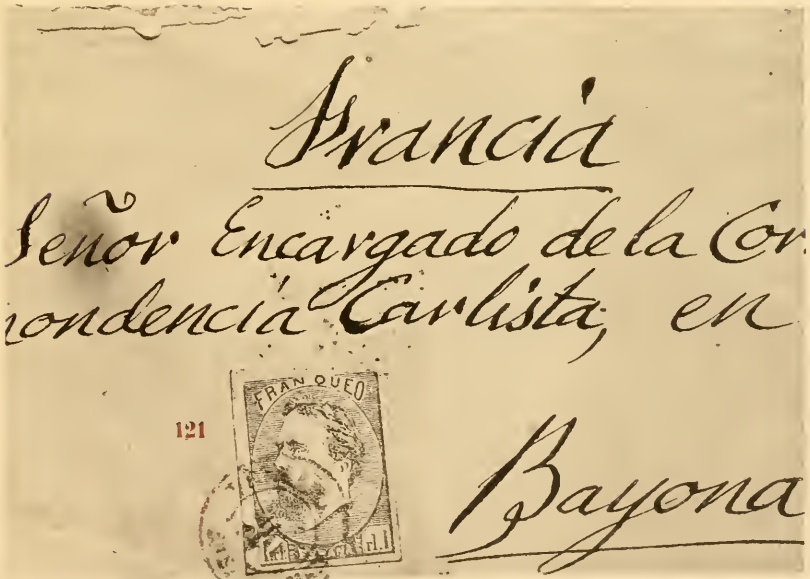 Francia
Señor Encargado de la Cor
pondencia Carlista, en
FRANQUEO
121
Bayona
rl.